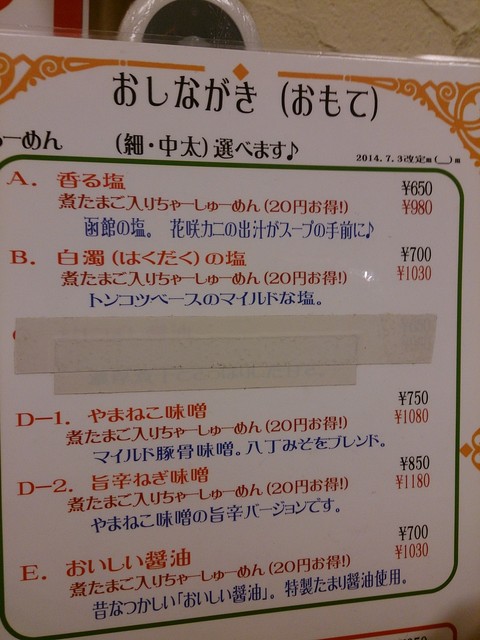 おしながき（おもて）
らーめん （細・中太）選べます♪
2014.7.3改定m(__)m
A. 香る塩 ¥650
煮たまご入りちゃーしゅーめん（20円お得!） ¥980
函館の塩。 花咲カニの出汁がスープの手前に♪
B. 白濁（はくだく）の塩 ¥700
煮たまご入りちゃーしゅーめん（20円お得!） ¥1030
トンコツベースのマイルドな塩。
D－1. やまねこ味噌 ¥750
煮たまご入りちゃーしゅーめん（20円お得!） ¥1080
マイルド豚骨味噌。八丁みそをブレンド。
D－2. 旨辛ねぎ味噌 ¥850
煮たまご入りちゃーしゅーめん（20円お得!） ¥1180
やまねこ味噌の旨辛バージョンです。
E. おいしい醤油 ¥700
煮たまご入りちゃーしゅーめん（20円お得!） ¥1030
昔なつかしい「おいしい醤油」。特製たまり醤油使用。